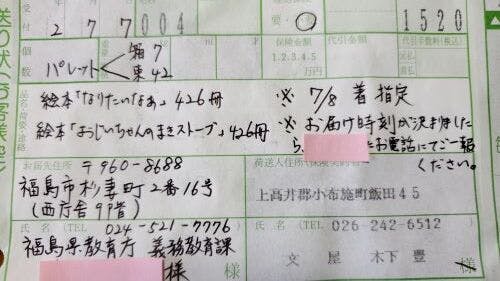 送り状(お客様控)
受付 2 7 7 004
要・
1520
個数
パレット 箱7 束42
保険金額
1.2.3.4.5
万円
代引金額
代引手数料(税込)
絵本「なりたいなあ」426冊
絵本「おうじいちゃんのまきストーブ」426冊
※ 7/8 着指定
※ お届け時刻が決まりました
ら、
たお電話にてご一報
ください。
お届先住所 〒960-8688
福島市杉妻町2番16号
(西庁舎 9階)
氏名 (TEL 024-521-7776
福島県教育庁 義務教育課
様
上高井郡小布施町飯田45
氏名(TEL 026-242-6512
文屋 木下 豊
様